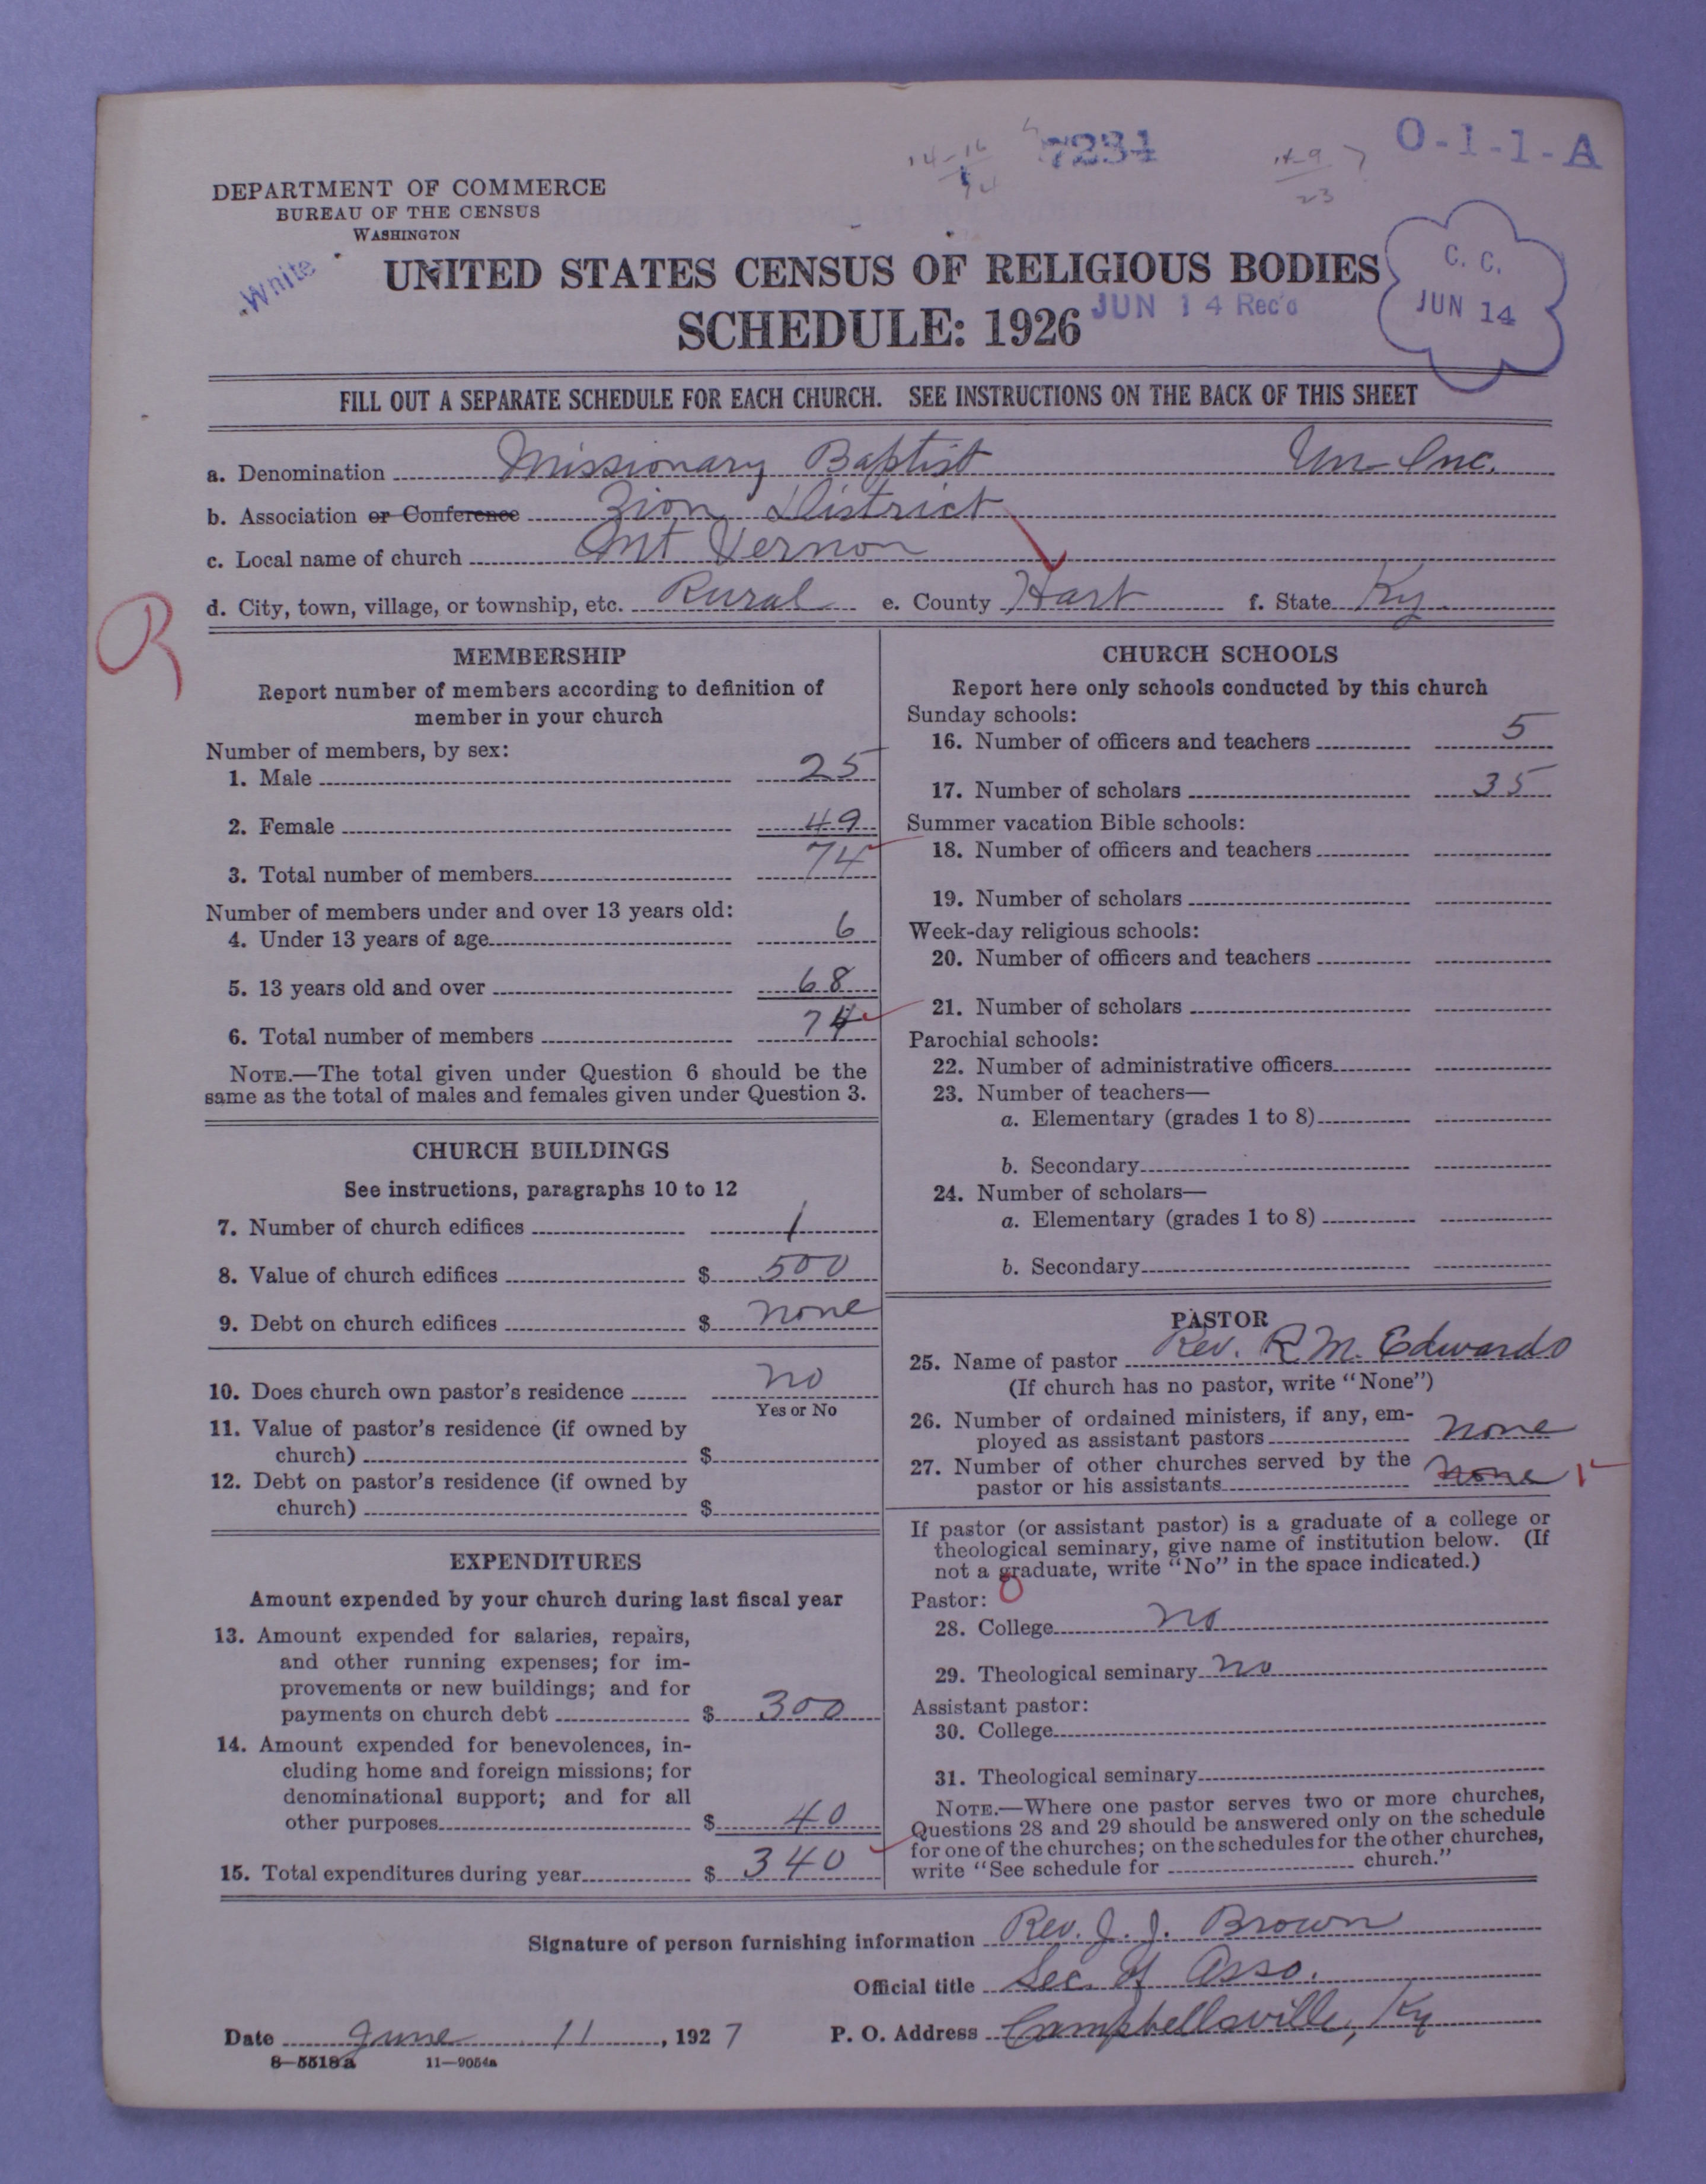 7234
O-1-1-A
DEPARTMENT OF COMMERCE
BUREAU OF THE CENSUS
WASHINGTON
White
UNITED STATES CENSUS OF RELIGIOUS BODIES
SCHEDULE: 1926
JUN 14 Rec'd
C. C.
JUN 14
FILL OUT A SEPARATE SCHEDULE FOR EACH CHURCH. SEE INSTRUCTIONS ON THE BACK OF THIS SHEET
a. Denomination Missionary Baptist Un-Inc.
b. Association or Conference Zion District
c. Local name of church Mt Vernon
d. City, town, village, or township, etc. Rural e. County Hart f. State Ky.
MEMBERSHIP
Report number of members according to definition of
member in your church
Number of members, by sex:
1. Male 25
2. Female 49
3. Total number of members 74
Number of members under and over 13 years old:
4. Under 13 years of age 6
5. 13 years old and over 68
6. Total number of members 74
NOTE.—The total given under Question 6 should be the
same as the total of males and females given under Question 3.
CHURCH BUILDINGS
See instructions, paragraphs 10 to 12
7. Number of church edifices 1
8. Value of church edifices $ 500
9. Debt on church edifices $ none
10. Does church own pastor's residence no
Yes or No
11. Value of pastor's residence (if owned by
church) $
12. Debt on pastor's residence (if owned by
church) $
EXPENDITURES
Amount expended by your church during last fiscal year
13. Amount expended for salaries, repairs,
and other running expenses; for im-
provements or new buildings; and for
payments on church debt $ 300
14. Amount expended for benevolences, in-
cluding home and foreign missions; for
denominational support; and for all
other purposes $ 40
15. Total expenditures during year $ 340
CHURCH SCHOOLS
Report here only schools conducted by this church
Sunday schools:
16. Number of officers and teachers 5
17. Number of scholars 35
Summer vacation Bible schools:
18. Number of officers and teachers
19. Number of scholars
Week-day religious schools:
20. Number of officers and teachers
21. Number of scholars
Parochial schools:
22. Number of administrative officers
23. Number of teachers—
a. Elementary (grades 1 to 8)
b. Secondary
24. Number of scholars—
a. Elementary (grades 1 to 8)
b. Secondary
PASTOR
25. Name of pastor Rev. R. M. Edwards
(If church has no pastor, write "None")
26. Number of ordained ministers, if any, em-
ployed as assistant pastors none
27. Number of other churches served by the
pastor or his assistants none
If pastor (or assistant pastor) is a graduate of a college or
theological seminary, give name of institution below. (If
not a graduate, write "No" in the space indicated.)
Pastor:
28. College no
29. Theological seminary no
Assistant pastor:
30. College
31. Theological seminary
NOTE.—Where one pastor serves two or more churches,
Questions 28 and 29 should be answered only on the schedule
for one of the churches; on the schedules for the other churches,
write "See schedule for church."
Signature of person furnishing information Rev. J. J. Brown
Official title Sec. of Asso.
Date June 11, 1927 P. O. Address Campbellsville, Ky
8—5518a 11—9054a